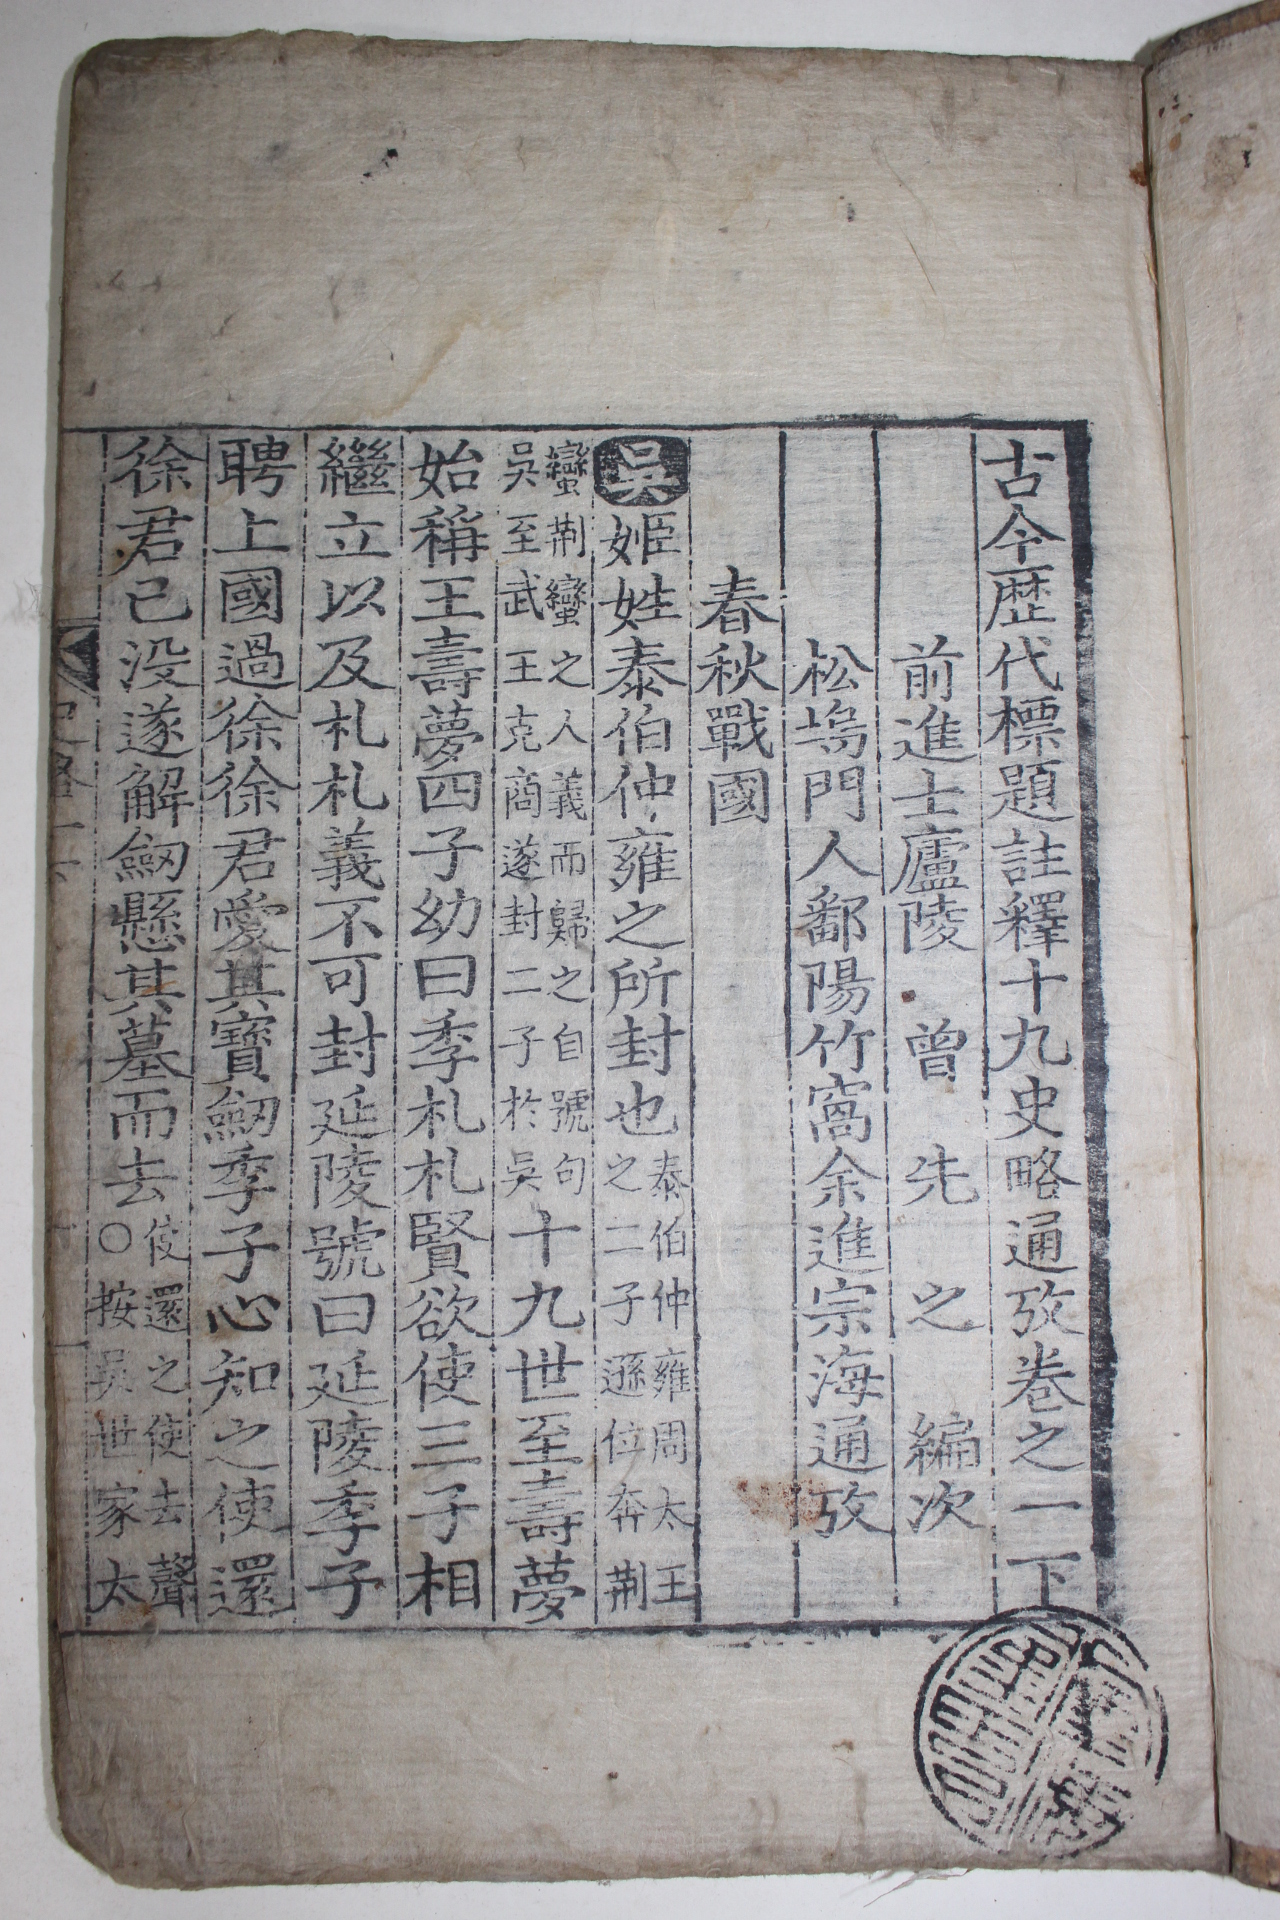 古今歷代標題註釋十九史略通攷卷之一下
前進士廬陵 曾 先 之 編次
松塢門人鄱陽竹窩余進宗海通攷
春秋戰國
吳姬姓泰伯仲雍之所封也泰伯仲雍周太王之二子遜位奔荆
蠻荆蠻之人義而歸之自號句吳至武王克商遂封二子於吳十九世至壽夢
始稱王壽夢四子幼曰季札札賢欲使三子相
繼立以及札札義不可封延陵號曰延陵季子
聘上國過徐徐君愛其寶劒季子心知之使還
徐君已没遂解劒懸其墓而去使還之使去聲○按吳世家太
史略一下